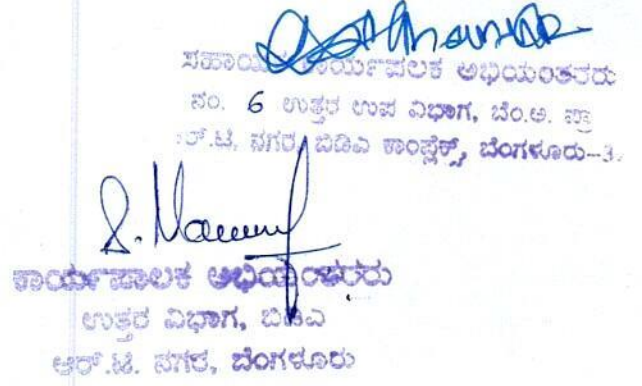 ಸಹಾಯಕ ಕಾರ್ಯಪಾಲಕ ಅಭಿಯಂತರರು
ನಂ. 6 ಉತ್ತರ ಉಪ ವಿಭಾಗ, ಬೆಂ.ಅ. ಪ್ರಾ
ಆರ್.ಟಿ. ನಗರ, ಬಿಡಿಎ ಕಾಂಪ್ಲೆಕ್ಸ್, ಬೆಂಗಳೂರು-3
ಕಾರ್ಯಪಾಲಕ ಅಭಿಯಂತರರು
ಉತ್ತರ ವಿಭಾಗ, ಬಿಡಿಎ
ಆರ್.ಟಿ. ನಗರ, ಬೆಂಗಳೂರು